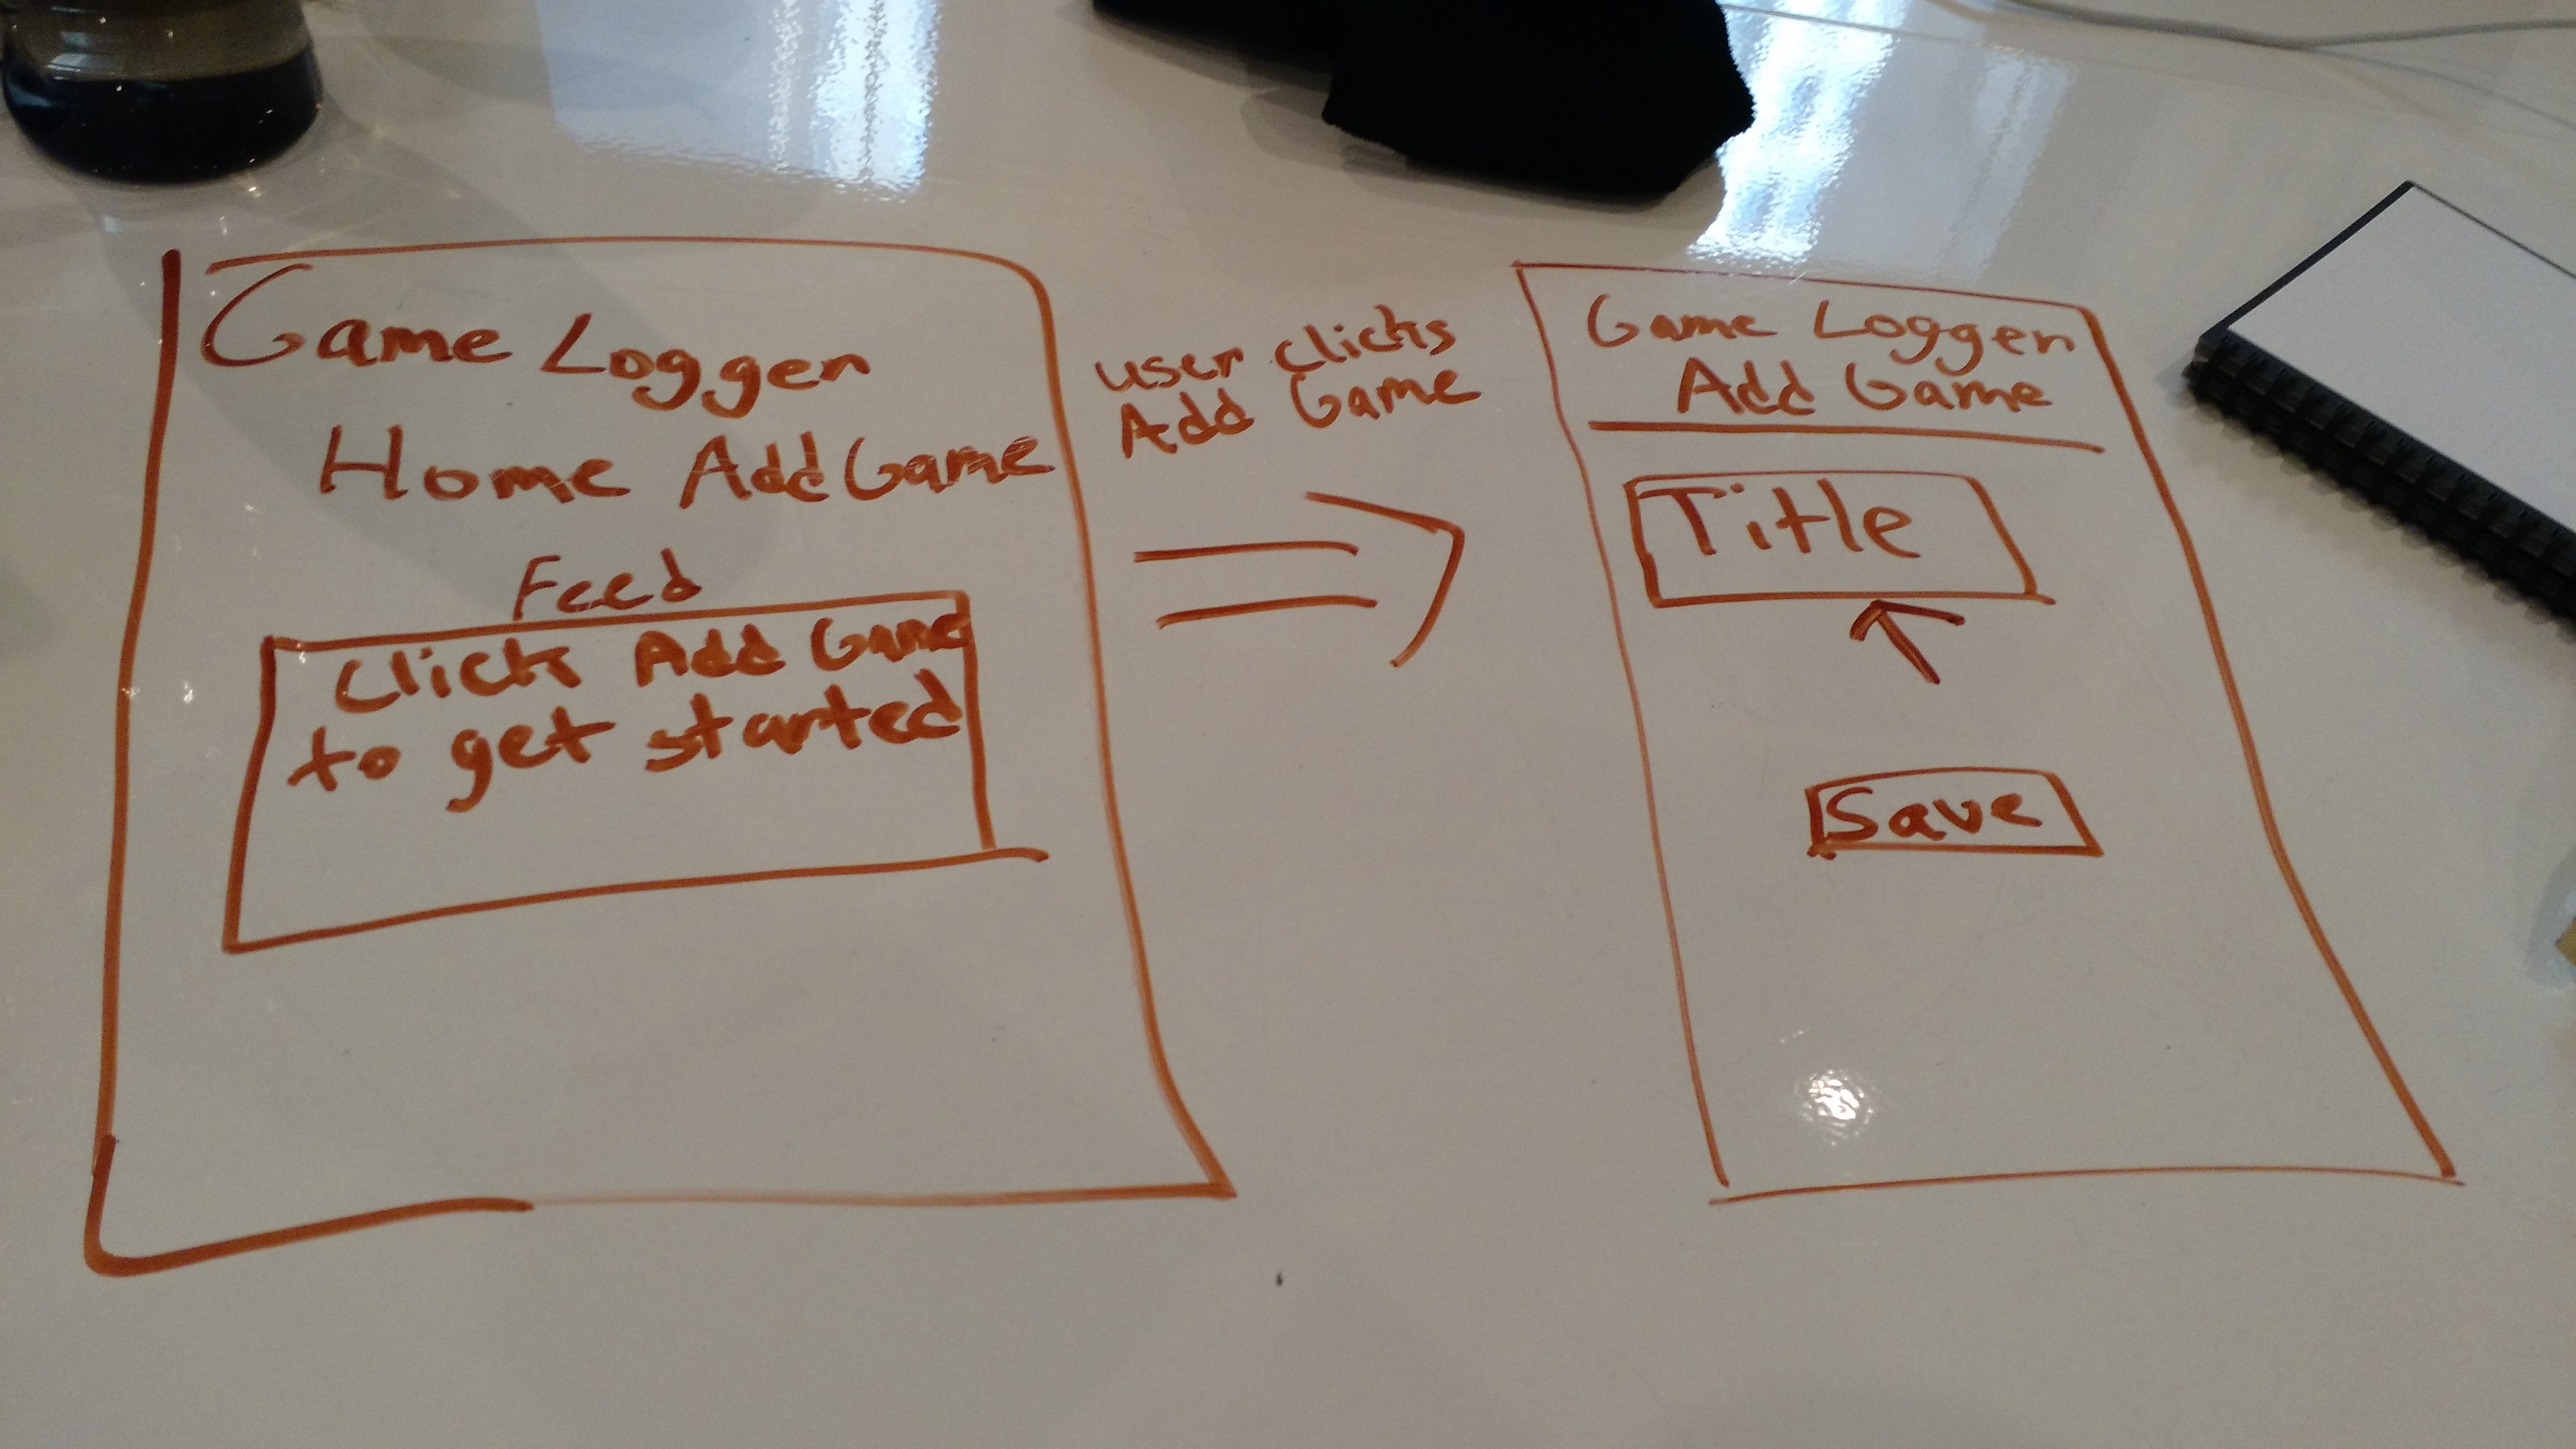 Game Logger
Home Add Game
Feed
Click Add Game
to get started
user clicks
Add Game
Game Logger
Add Game
Title
Save